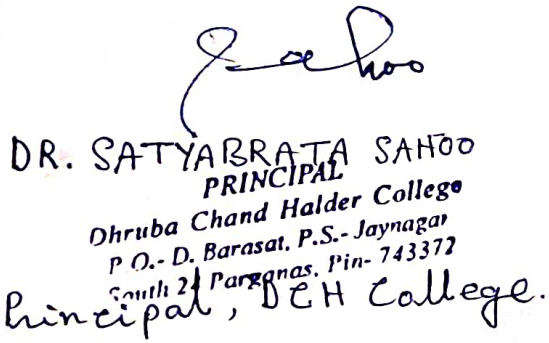 Sahoo
DR. SATYABRATA SAHOO
PRINCIPAL
Dhruba Chand Halder College
P.O.- D. Barasat, P.S.- Jaynagar
South 24 Parganas, Pin- 743372
Principal, DCH College.